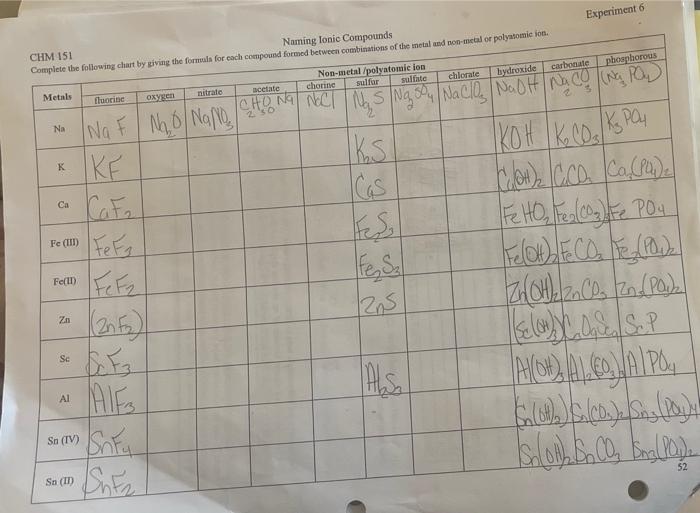 Experiment 6
Naming Ionic Compounds
CHM 151
Complete the following chart by giving the formula for each compound formed between combinations of the metal and non-metal or polyatomic ion.
Non-metal /polyatomic ion
Metals fluorine oxygen nitrate acetate chorine sulfur sulfate chlorate hydroxide carbonate phosphorous
Na NaF Na2O NaNO3 C2H3O2Na NaCl Na2S Na2SO4 NaClO3 NaOH Na2CO3 (Na3PO4)
K KF K2S KOH K2CO3 K3PO4
Ca CaF2 CaS Ca(OH)2 CaCO3 Ca3(PO4)2
Fe (III) FeF3 Fe2S3 FeHO2 Fe2(CO3)3 Fe PO4
Fe(II) FeF2 Fe2S3 Fe(OH)2 FeCO3 Fe3(PO4)2
Zn (ZnF2) ZnS Zn(OH)2 ZnCO3 Zn3(PO4)2
Sc ScF3 ScP
Al AlF3 Al2S3 Al(OH)3 AlPO4
Sn (IV) SnF4 Sn(CO3)2 Sn3(PO4)4
Sn (II) SnF2 Sn(OH)2 SnCO3 Sn3(PO4)2
52